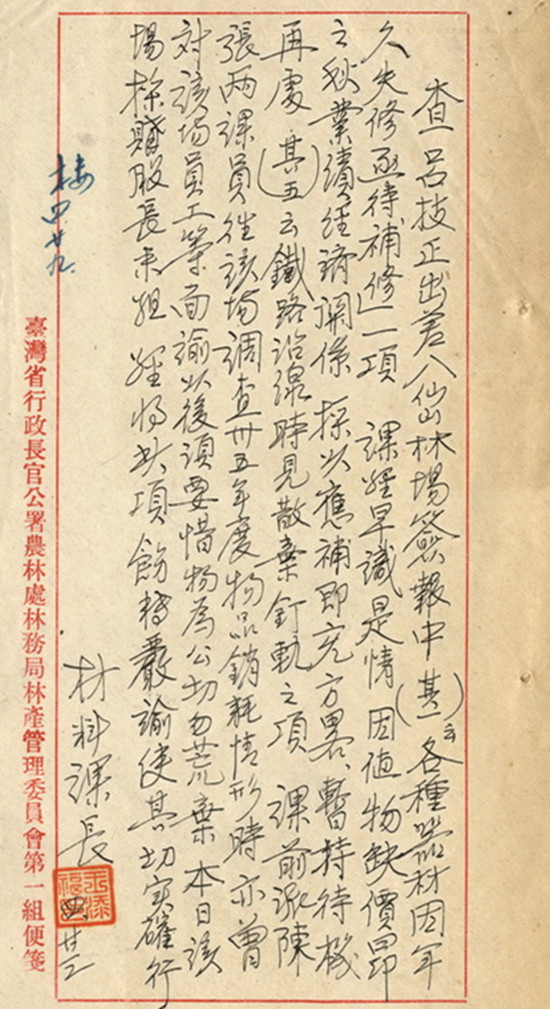 查呂技正出差八仙林場簽報中(其一)云各種器材因年
久失修亟待補修一項 課經早識是情因值物缺價昂
之秋業績經濟關係採以應補即充方畧、暫持待機
再處(其五)云鐵路沿線時見散棄釘軌之項 課前派陳
張兩課員往該場調查卅五年度物品銷耗情形時亦曾
対該場員工等面諭以後須要惜物為公切勿荒棄本日該
場採購股長来組 經将此項飭轉嚴諭使其切實確行
材料課長 四廿三
樓四廿九
臺灣省行政長官公署農林處林務局林產管理委員會第一組便箋